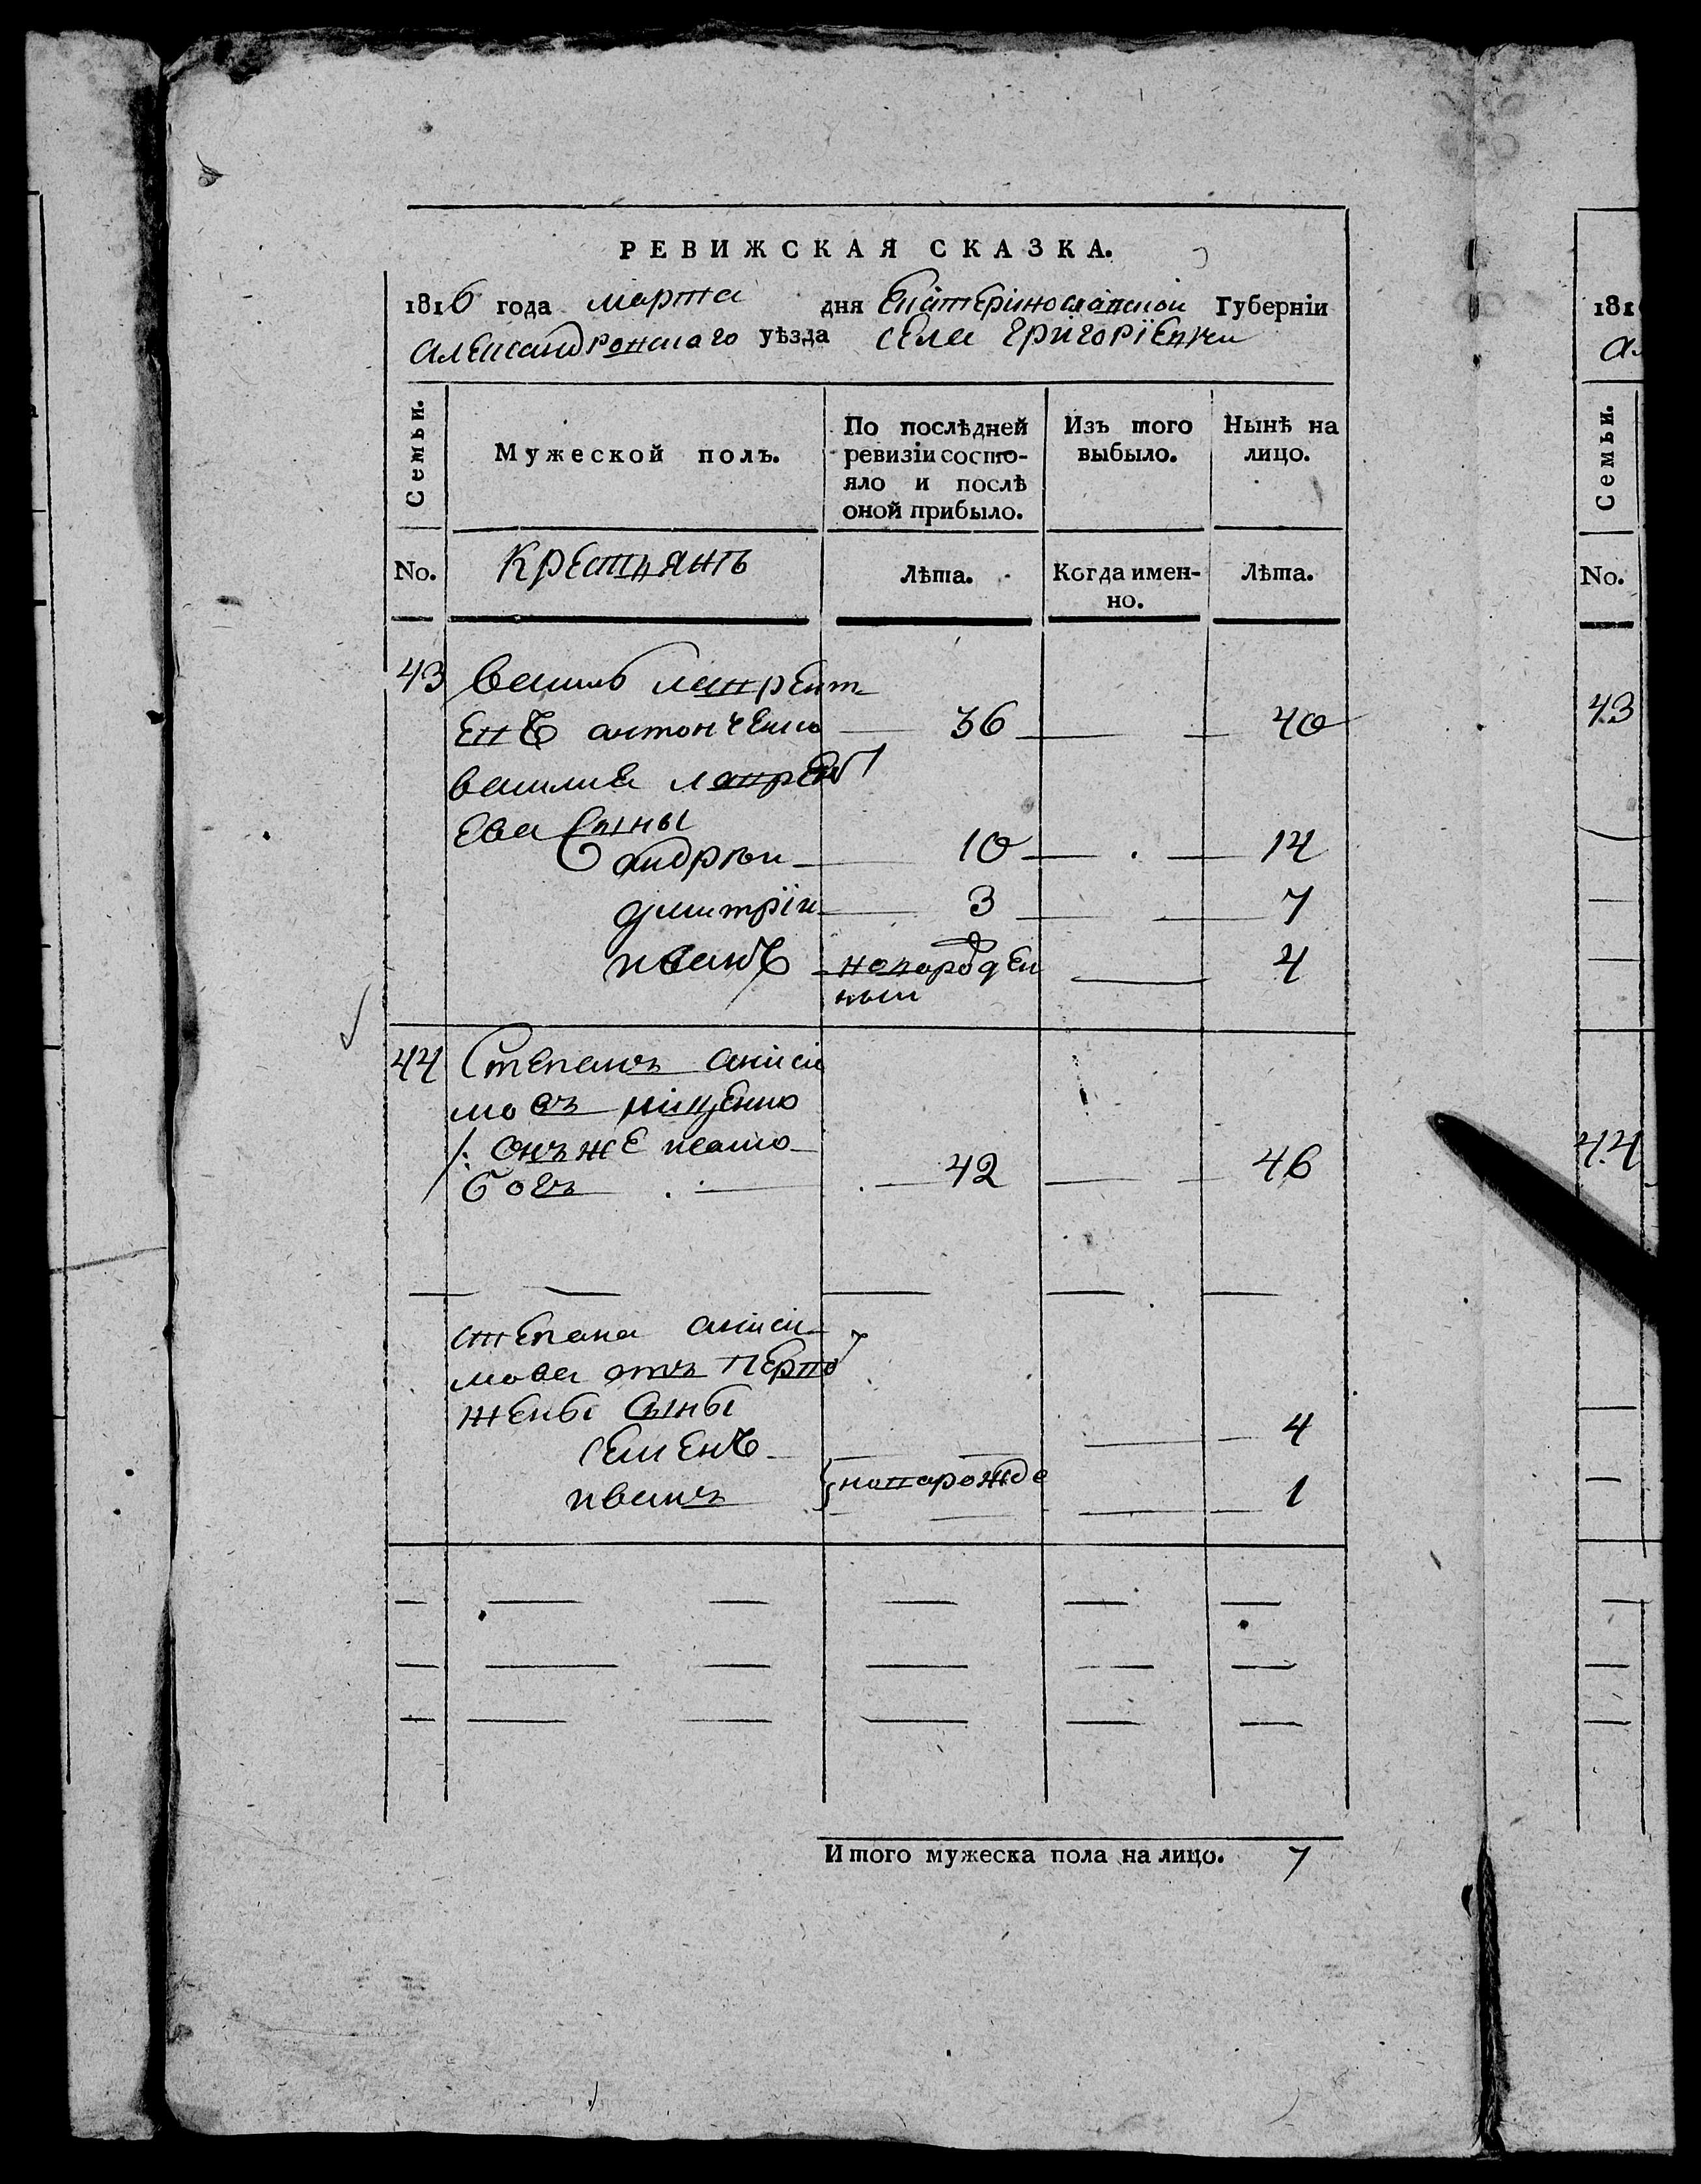 РЕВИЖСКАЯ СКАЗКА.
1816 года марта дня Екатерінославской Губернiи
Александровскаго уѣзда села Григорїевки
Семьи.
Мужеской полъ.
По послѣдней ревизiи состо-
яло и послѣ
оной прибыло.
Изъ того
выбыло.
Нынѣ на
лицо.
No.
Крестьянъ
Лѣта.
Когда имен-
но.
Лѣта.
43 Василь Лаврент
евъ антонченко 36 40
василия лаврент
ева Сыны
андрѣи 10 14
димитрїи 3 7
иванъ новорожден
ныи 4
44 Степанъ аниси
мовъ
/: онъ же
42 46
степана аниси
мова отъ перво
жены Сыны
семенъ 4
иванъ новорожде 1
Итого мужеска пола на лицо. 7
181
Семьи.
No.
43
44